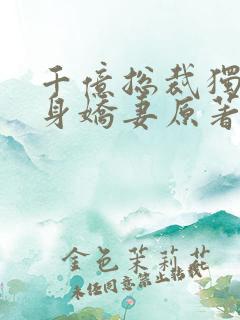 千億総裁獨
身嬌妻原著
金色茉莉花
未经同意禁止转载